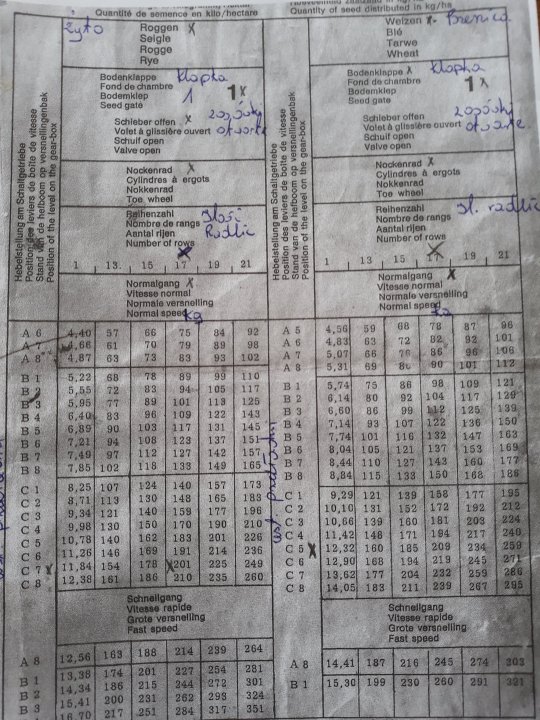 Quantité de semence en kilo/hectare
żyto
Roggen x
Seigle
Rogge
Rye
Bodenklappe klapka
Fond de chambre
Bodemklep 1 1 x
Seed gate
Schieber offen x
Volet à glissière ouvert otwarte
Schuif open
Valve open
Nockenrad x
Cylindres à ergots
Nokkenrad
Toe wheel
Reihenzahl
Nombre de rangs
Aantal rijen
Number of rows
1 13 15 17 19 21
Normalgang x
Vitesse normal
Normale versnelling
Normal speed kg
Hebelstellung am Schaltgetriebe
Position des leviers de boîte de vitesse
Stand van de hefboom op versnellingenbak
Position of the level on the gear-box
A 6 4,40 57 66 75 84 92
A 7 4,66 61 70 79 89 98
A 8 4,87 63 73 83 93 102
B 1 5,22 68 78 89 99 110
B 2 5,55 72 83 94 105 117
B 3 5,95 77 89 101 113 125
B 4 6,40 83 96 109 122 143
B 5 6,89 90 103 117 131 145
B 6 7,21 94 108 123 137 151
B 7 7,49 97 112 127 142 157
B 8 7,85 102 118 133 149 165
C 1 8,25 107 124 140 157 173
C 2 8,71 113 130 148 165 183
C 3 9,34 121 140 159 177 196
C 4 9,98 130 150 170 190 210
C 5 10,78 140 162 183 201 226
C 6 11,26 146 169 191 214 236
C 7 x 11,84 154 178 x 201 225 249
C 8 12,38 161 186 210 235 260
Schnellgang
Vitesse rapide
Grote versnelling
Fast speed
A 8 12,56 163 188 214 239 264
B 1 13,38 174 201 227 254 281
B 2 14,34 186 215 244 272 301
B 3 15,41 200 231 262 293 324
16,70 217 251 284 317 351
Quantity of seed distributed in kg/ha
Weizen x
Blé
Tarwe
Wheat
Bodenklappe x klapka
Fond de chambre
Bodemklep 1 x
Seed gate
Schieber offen
Volet à glissière ouvert
Schuif open
Valve open
Nockenrad x
Cylindres à ergots
Nokkenrad
Toe wheel
Reihenzahl
Nombre de rangs
Aantal rijen
Number of rows
1 13 15 17 19 21
Normalgang x
Vitesse normal
Normale versnelling
Normal speed
Hebelstellung am Schaltgetriebe
Position des leviers de boîte de vitesse
Stand van de hefboom op versnellingenbak
Position of the level on the gear-box
A 5 4,56 59 68 78 87 96
A 6 4,83 63 72 82 92 101
A 7 5,07 66 76 86 96 106
A 8 5,31 69 80 90 101 112
B 1 5,74 75 86 98 109 121
B 2 6,14 80 92 104 117 129
B 3 6,60 86 99 112 125 139
B 4 7,14 93 107 122 136 150
B 5 7,74 101 116 132 147 163
B 6 8,04 105 121 137 153 169
B 7 8,44 110 127 143 160 177
B 8 8,84 115 133 150 168 186
C 1 9,29 121 139 158 177 195
C 2 10,10 131 152 172 192 212
C 3 10,66 139 160 181 203 224
C 4 11,42 148 171 194 217 240
C 5 x 12,32 160 185 209 234 259
C 6 12,90 168 194 219 245 271
C 7 13,62 177 204 232 259 286
C 8 14,05 183 211 239 267 295
Schnellgang
Vitesse rapide
Grote versnelling
Fast speed
A 8 14,41 187 216 245 274 303
B 1 15,30 199 230 260 291 321